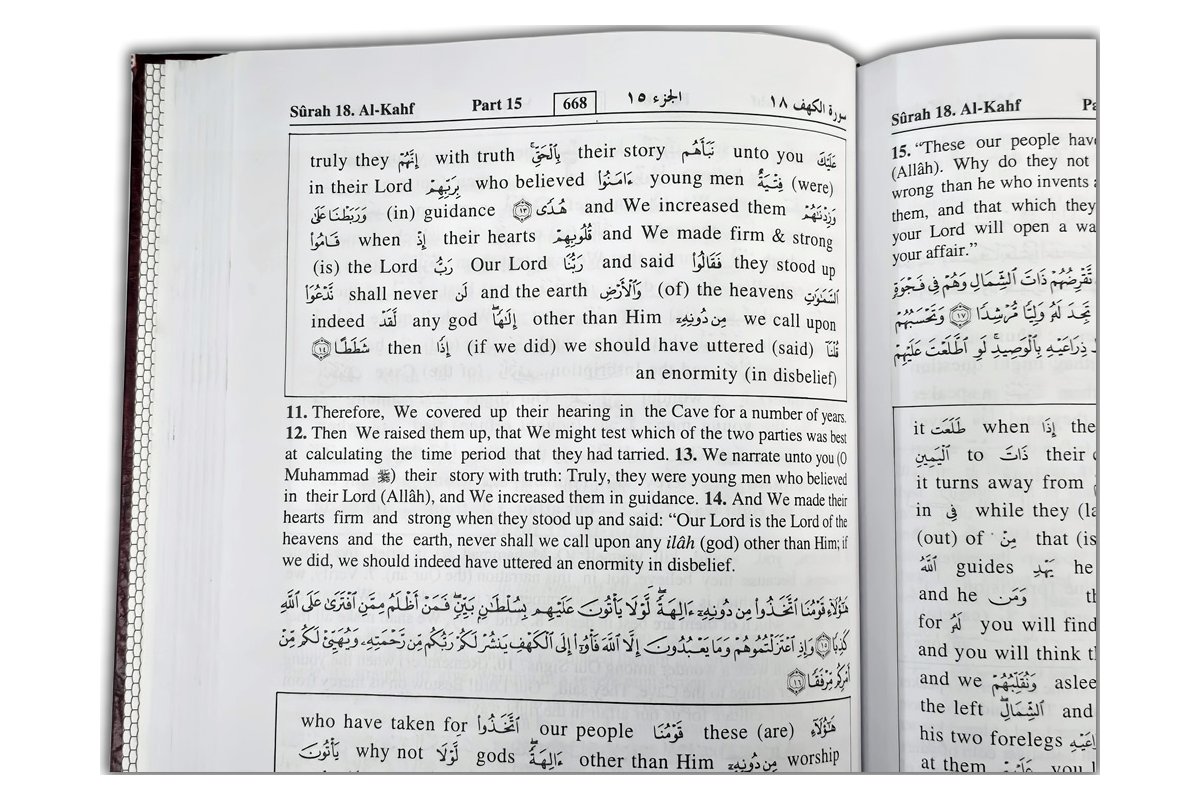 Sûrah 18. Al-Kahf Part 15 668 الجزء ١٥ سورة الكهف ١٨
عَلَيْكَ unto you نَبَأَهُم their story بِٱلْحَقِّ ۚ with truth إِنَّهُمْ truly they
(were) فِتْيَةٌ young men ءَامَنُوا۟ who believed بِرَبِّهِمْ in their Lord
وَزِدْنَٰهُمْ and We increased them هُدًى ١٣ (in) guidance وَرَبَطْنَا عَلَىٰ
and We made firm & strong قُلُوبِهِمْ their hearts إِذْ when قَامُوا۟
they stood up فَقَالُوا۟ and said رَبُّنَا Our Lord رَبُّ (is) the Lord
ٱلسَّمَٰوَٰتِ (of) the heavens وَٱلْأَرْضِ and the earth لَن shall never نَّدْعُوَا۟
we call upon مِن دُونِهِۦٓ other than Him إِلَٰهًا ۖ any god لَّقَدْ indeed
قُلْنَآ (if we did) we should have uttered (said) إِذًا then شَطَطًا ١٤
an enormity (in disbelief)
11. Therefore, We covered up their hearing in the Cave for a number of years.
12. Then We raised them up, that We might test which of the two parties was best
at calculating the time period that they had tarried. 13. We narrate unto you (O
Muhammad ﷺ) their story with truth: Truly, they were young men who believed
in their Lord (Allâh), and We increased them in guidance. 14. And We made their
hearts firm and strong when they stood up and said: “Our Lord is the Lord of the
heavens and the earth, never shall we call upon any ilâh (god) other than Him; if
we did, we should indeed have uttered an enormity in disbelief.
هَٰٓؤُلَآءِ قَوْمُنَا ٱتَّخَذُوا۟ مِن دُونِهِۦٓ ءَالِهَةً ۖ لَّوْلَا يَأْتُونَ عَلَيْهِم بِسُلْطَٰنٍۭ بَيِّنٍ ۖ فَمَنْ أَظْلَمُ مِمَّنِ ٱفْتَرَىٰ عَلَى ٱللَّهِ
كَذِبًا ١٥ وَإِذِ ٱعْتَزَلْتُمُوهُمْ وَمَا يَعْبُدُونَ إِلَّا ٱللَّهَ فَأْوُۥٓا۟ إِلَى ٱلْكَهْفِ يَنشُرْ لَكُمْ رَبُّكُم مِّن رَّحْمَتِهِۦ وَيُهَيِّئْ لَكُم مِّنْ
أَمْرِكُم مِّرْفَقًا ١٦
هَٰٓؤُلَآءِ these (are) قَوْمُنَا our people ٱتَّخَذُوا۟ who have taken for
worship مِن دُونِهِۦٓ other than Him ءَالِهَةً ۖ gods لَّوْلَا why not يَأْتُونَ
Sûrah 18. Al-Kahf
15. “These our people have
(Allâh). Why do they not
wrong than he who invents
them, and that which they
your Lord will open a
your affair.”
تَّقْرِضُهُمْ ذَاتَ ٱلشِّمَالِ وَهُمْ فِى فَجْوَةٍ
تَجِدَ لَهُۥ وَلِيًّا مُّرْشِدًا ١٧ وَتَحْسَبُهُمْ
ذِرَاعَيْهِ بِٱلْوَصِيدِ ۚ لَوِ ٱطَّلَعْتَ عَلَيْهِمْ
the إِذَا when طَلَعَت it
their ذَاتَ to ٱلْيَمِينِ
it turns away from
while they فِى in
that مِنْ (out) of
he يَهْدِ guides ٱللَّهُ
وَمَن and he
you will find لَهُۥ for
and you will think
وَنُقَلِّبُهُمْ and we
and ٱلشِّمَالِ ۖ the left
his two forelegs
عَلَيْهِمْ at them